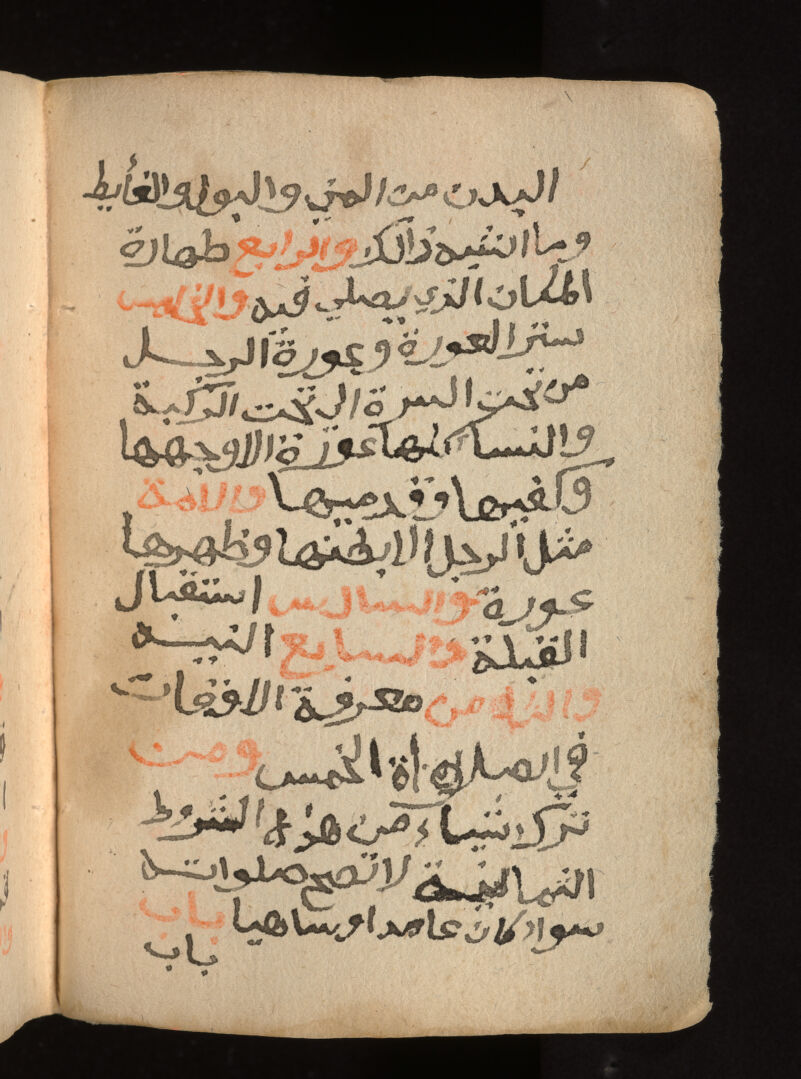 البدن من المني والبول والغأيط
وما اشبه ذالك والرابع طهارة
المكان الذي يصلي فيه والخامس
ستر العورة وعورة الرجل
من تحت السرة الى تحت الركبة
والنساء كلها عورة الا وجهها
وكفيها وقدميها والامة
مثل الرجل الا بطنها وظهرها
عورة والسادس استقبال
القبلة والسابع النية
والثامن معرفة الاوقات
في الصلاة الخمس ومن
ترك شياء من هذه الشروط
الثمانية لا تصح صلواته
سواء كان عامدا او ساهيا باب
باب